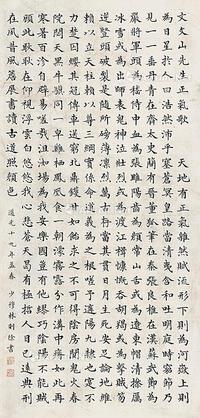 文文山先生正氣歌 天地有正氣雜然賦流形下則為河嶽上則
為日星於人曰浩然沛乎塞蒼冥皇路當清夷含和吐明庭時窮節乃
見一一垂丹青在齊太史簡在晉董狐筆在秦張良椎在漢蘇武節為
嚴將軍頭為嵇侍中血為張睢陽齒為顏常山舌或為遼東帽清操厲
冰雪或為出師表鬼神泣壯烈或為渡江楫慷慨吞胡羯或為擊賊笏
逆豎頭破裂是氣所磅礴凜烈萬古存當其貫日月生死安足論地維
賴以立天柱賴以尊三綱實係命道義為之根嗟予遘陽九隸也實不
力楚囚纓其冠傳車送窮北鼎鑊甘如飴求之不可得陰房闃鬼火春
院閟天黑牛驥同一皁雞棲鳳凰食一朝濛霧露分作溝中瘠如此再
寒暑百沴自辟易嗟哉沮洳場為我安樂國豈有他繆巧陰陽不能賊
顧此耿耿在仰視浮雲白悠悠我心悲蒼天曷有極哲人日已遠典刑
在夙昔風簷展書讀古道照顏色 道光十九年孟春 少穆林則徐書